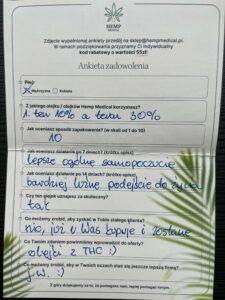 HEMP
MEDICAL
Zdjęcie wypełnionej ankiety prześlij na sklep@hempmedical.pl.
W ramach podziękowania przyznamy Ci indywidualny
kod rabatowy o wartości 55zł!
Ankieta zadowolenia
Płeć:
Mężczyzna Kobieta
Z jakiego olejku / olejków Hemp Medical korzystasz?
1. ten 10% a teraz 30%
Jak oceniasz sposób zapakowania? (w skali od 1 do 10)
10
Jak oceniasz działanie po 7 dniach? (krótko opisz)
lepsze ogólne samopoczucie
Jak oceniasz działanie po 14 dniach? (krótko opisz)
bardziej luźne podejście do życia
Czy ten olejek uznajesz za skuteczny?
tak
Co możemy zrobić, aby zyskać w Tobie stałego klienta?
nic, już u Was kupuje i zostane
Co Twoim zdaniem powinniśmy wprowadzić do oferty?
olejki z THC :)
Co możemy zrobić, aby w Twoich oczach stać się jeszcze lepszą firmą?
j.w. :)
Z góry dziękujemy za to, że pomagasz nam, lepiej pomagać innym.